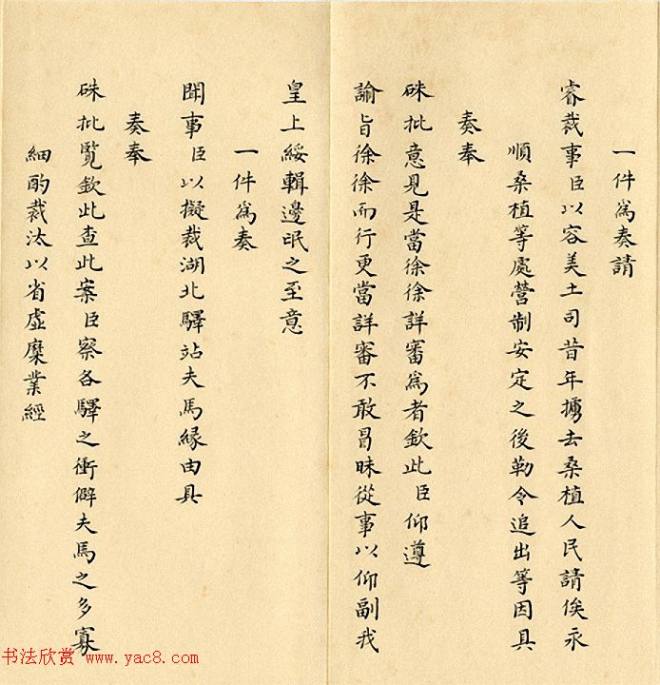 一件為奏請
睿裁事臣以容美土司昔年擄去桑植人民請俟永
順桑植等處營制安定之後勒令追出等因具
奏奉
硃批意見是當徐徐詳審為者欽此臣仰遵
諭旨徐徐而行更當詳審不敢冒昧從事以仰副我
皇上綏輯邊氓之至意
一件為奏
聞事臣以擬裁湖北驛站夫馬緣由具
奏奉
硃批覽欽此查此案臣察各驛之衝僻夫馬之多寡
細酌裁汰以省虛糜業經
书法欣赏 www.yac8.com